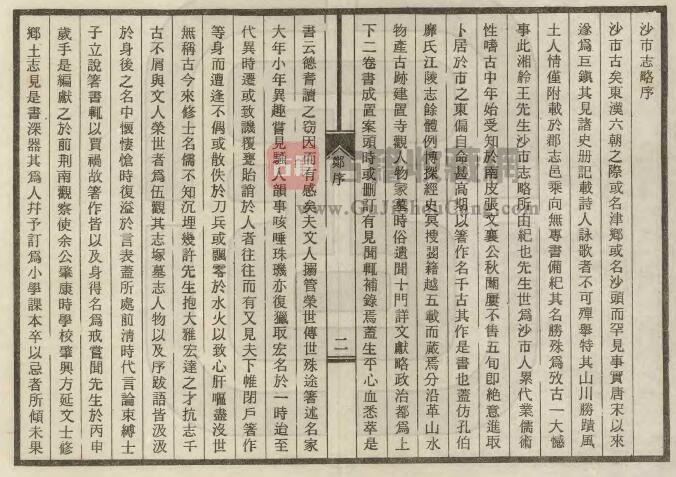 沙市志略序
沙市古矣東漢六朝之際或名津鄉或名沙頭而罕見事實唐宋以來
遂爲巨鎮其見諸史册記載詩人詠歌者不可殫舉特其山川勝蹟風
土人情僅附載於郡志邑乘向無專書備紀其名勝殊爲攷古一大憾
事此湘舲王先生沙市志略所由紀也先生世爲沙市人累代業儒術
性嗜古中年始受知於南皮張文襄公秋闈屢不售五旬卽絶意進取
卜居於市之東偏自命甚高期以箸作名千古其作是書也蓋仿孔伯
靡氏江陵志餘體例博探經史冥搜羣籍越五載而蕆焉分沿革山水
物產古跡建置寺觀人物冢墓時俗遺聞十門詳文獻略政治都爲上
下二卷書成置案頭時或刪訂有見聞輒補錄焉蓋生平心血悉萃是
鄭序
二
書云德耆讀之窃因而有感矣夫文人搦管榮世傳世殊途箸述名家
大年小年異趣嘗見騷人韻事咳唾珠璣亦復獵取宏名於一時迨至
代異時遷或致譏覆甕貽誚於人者往往而有又見夫下帷閉戸箸作
等身而遭逢不偶或散佚於刀兵或飄零於水火以致心肝嘔盡沒世
無稱古今來修士名儒不知沉埋幾許先生抱大雅宏達之才抗志千
古不屑與文人榮世者爲伍觀其志塚墓志人物以及序跋語皆汲汲
於身後之名中懷悽愴時復溢於言表蓋所處前淸時代言論束縛士
子立說箸書輒以賈禍故箸作皆以及身得名爲戒嘗聞先生於丙申
歲手是編獻之於前荆南觀察使余公肇康時學校肇興方延文士修
鄉土志見是書深器其爲人幷予訂爲小學課本卒以忌者所傾未果
古籍收藏网
www.GuJiShouCang.com